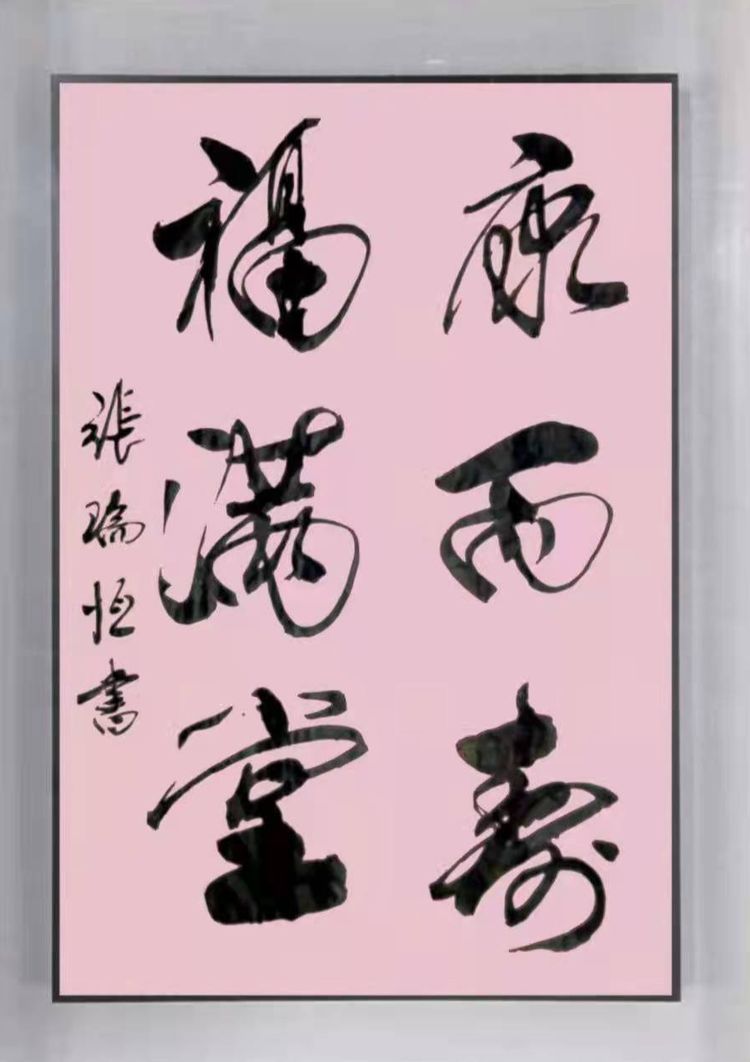 康而寿
福满堂
张瑞恒書